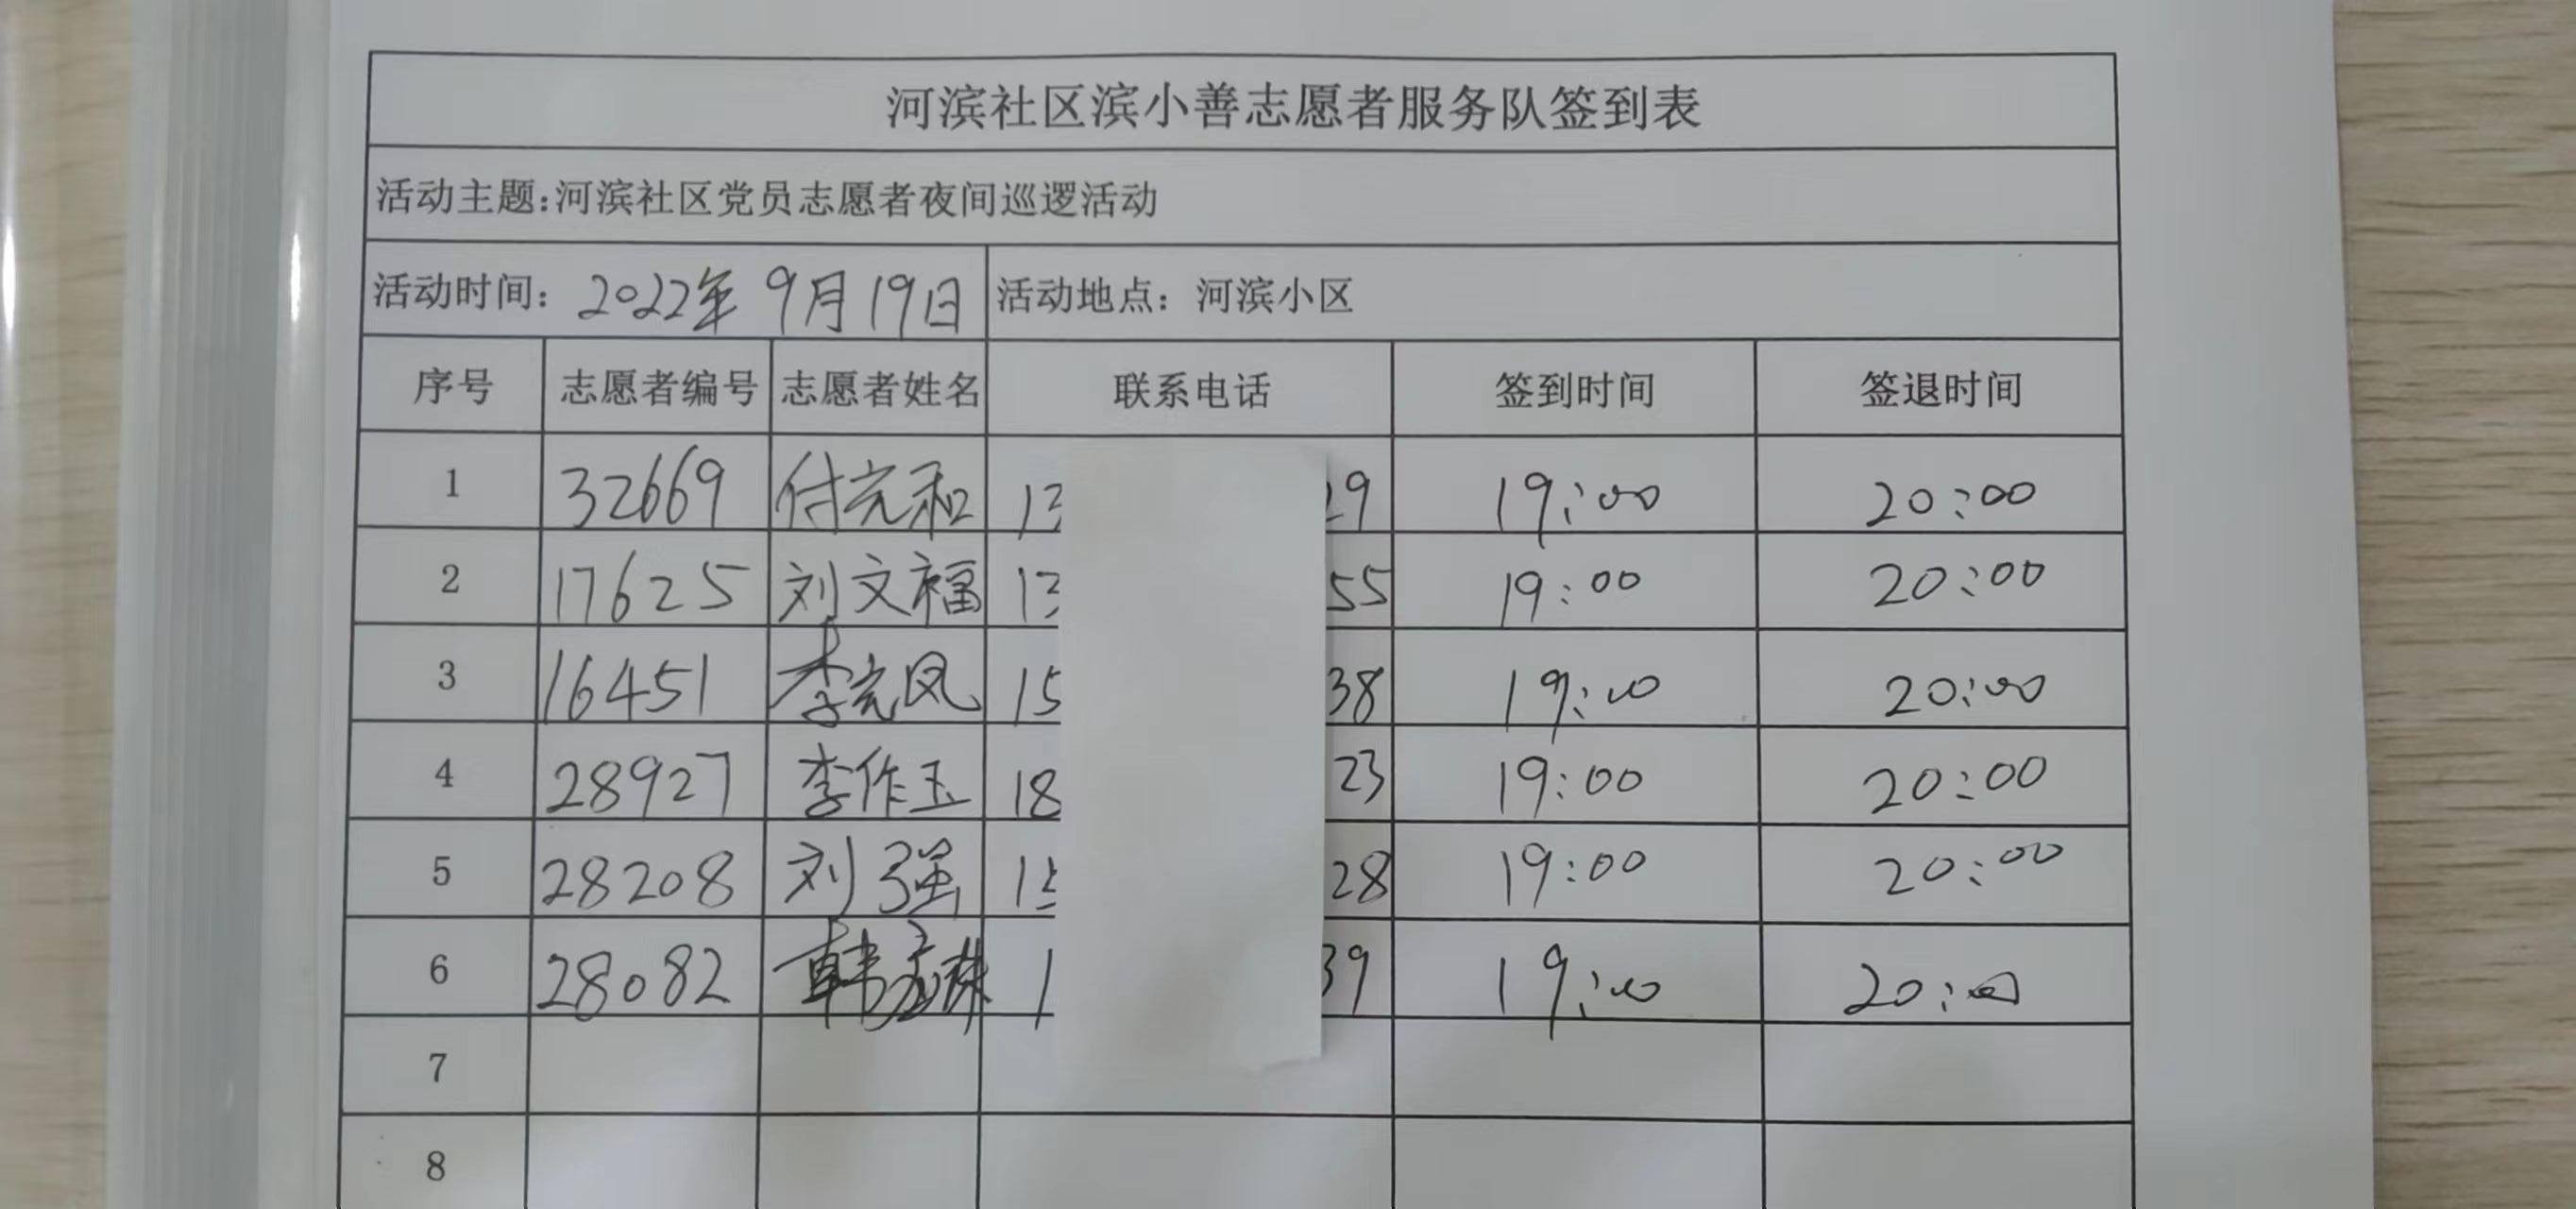 河滨社区滨小善志愿者服务队签到表
活动主题:河滨社区党员志愿者夜间巡逻活动
活动时间: 2022年 9月19日 活动地点: 河滨小区
序号 志愿者编号 志愿者姓名 联系电话 签到时间 签退时间
1 32669 付克和 13 29 19:00 20:00
2 17625 刘文福 13 55 19:00 20:00
3 16451 李克凤 15 38 19:00 20:00
4 28927 李作玉 18 23 19:00 20:00
5 28208 刘强 15 28 19:00 20:00
6 28082 韩 1 39 19:00 20:00
7
8